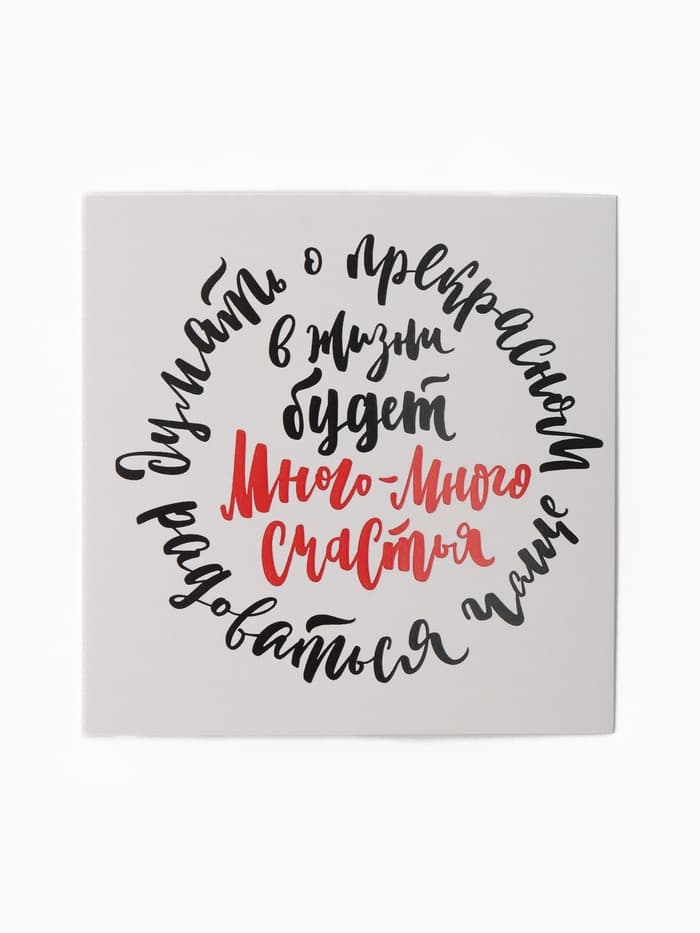 Думать о прекрасном
чаще радоваться
в жизни
будет
Много-Много
счастья